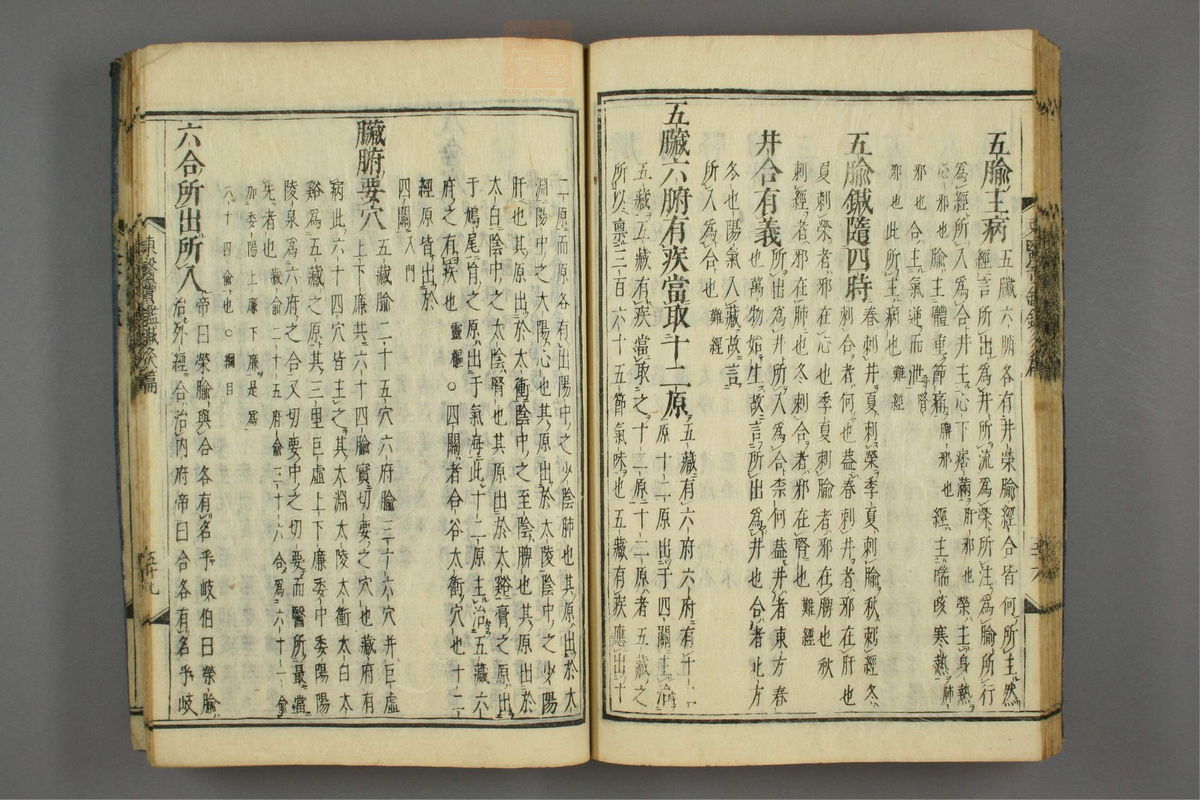 五腧主病
五臟六腑各有井榮腧經合皆何所主然
經言所出爲井所流爲榮所注爲腧所行
爲經所入爲合井主心下痞滿肝邪也榮主身熱
心邪也腧主體重節痛脾邪也經主喘咳寒熱肺
邪也合主氣逆而泄腎
邪也此所主病也難經
五腧鍼隨四時
春刺井夏刺榮季夏刺腧秋刺經冬
刺合者何也盖春刺井者邪在肝也
夏刺榮者邪在心也季夏刺腧者邪在脾也秋
刺經者邪在肺也冬刺合者邪在腎也難經
井合有義
所出爲井所入爲合柰何盖井者東方春
也萬物始生故言所出爲井也合者北方
冬也陽氣入藏故言
所入爲合也難經
五臟六腑有疾當取十二原
五藏有六府六府有十
二原十二原出于四關主治
五藏五藏有疾當取之十二原十二原者五藏之
所以稟三百六十五節氣味也五藏有疾應出十
二原而原各有出陽中之少陰肺也其原出於太
淵陽中之太陽心也其原出於太陵陰中之少陽
肝也其原出於太衝陰中之至陰脾也其原出於
太白陰中之太陰腎也其原出於太谿膏之原出
于鳩尾肓之原出于氣海此十二原主治五藏六
府之有疾也靈樞○四關者合谷太衝穴也十二
經原皆出於
四關入門
臟腑要穴
五藏腧二十五穴六府腧三十六穴并巨虛
上下廉共六十四腧實切要之穴也藏府有
病此六十四穴皆主之其太淵太陵太衝太白太
谿爲五藏之原其三里巨虛上下廉委中委陽陽
陵泉爲六府之合又切要中之切要而醫所最當
先者也藏兪二十五府兪三十六合爲六十一兪
加委陽上廉下廉是爲
六十四兪也○綱目
六合所出所入
帝曰榮腧與合各有名乎岐伯曰榮腧
治外經合治內府帝曰合各有名乎岐
東醫寶鑑鍼灸篇
五十九